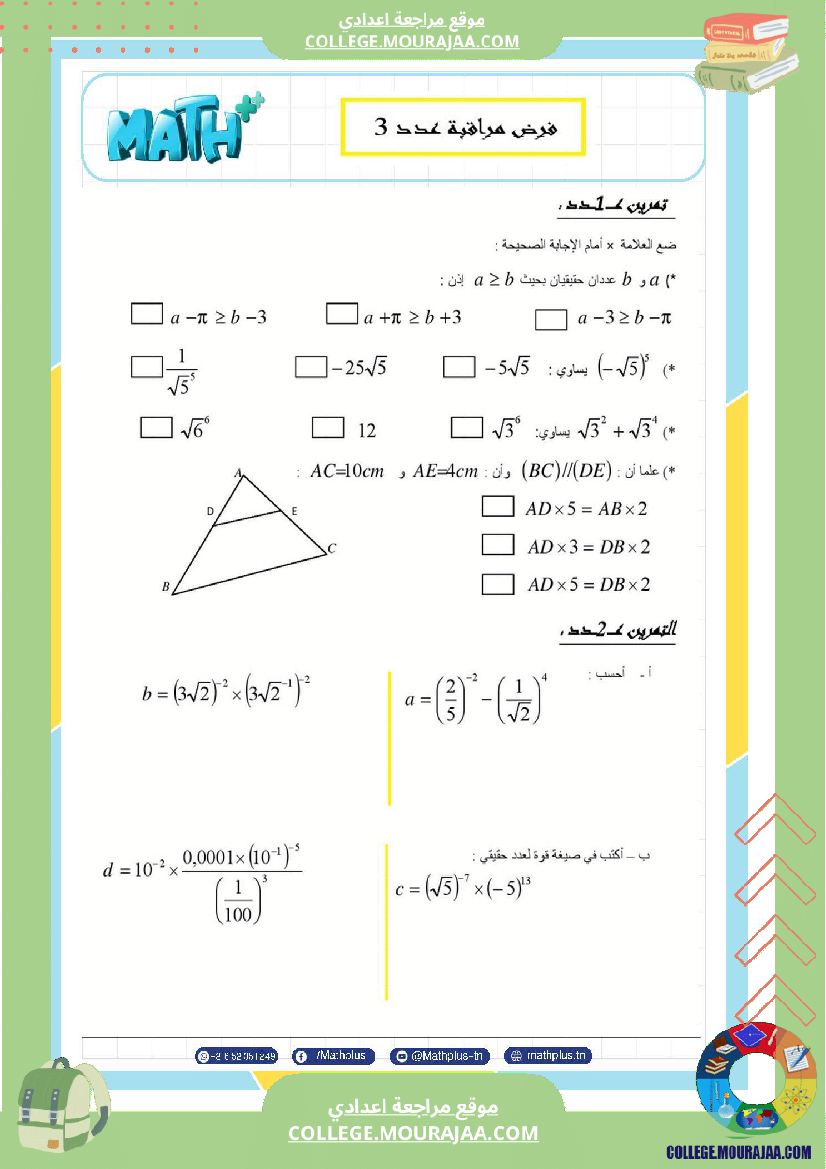 موقع مراجعة اعدادي
COLLEGE.MOURAJAA.COM
MATH++
فرض مراقبة عدد 3
تمرين عـ1ـدد :
ضع العلامة x أمام الإجابة الصحيحة :
*) a و b عددان حقيقيان بحيث a ≥ b إذن :
a −3 ≥ b −π   a +π ≥ b +3   a −π ≥ b −3
*) (−√5)⁵ يساوي :   −5√5   −25√5   1/√5⁵
*) √3² + √3⁴ يساوي:   √3⁶   12   √6⁶
*) علما أن : (BC)//(DE) وأن : AE=4cm و AC=10cm :
AD×5 = AB×2
AD×3 = DB×2
AD×5 = DB×2
A
D
E
C
B
التمرين عـ2ـدد :
أ - أحسب :
a = (2/5)⁻² − (1/√2)⁴
b = (3√2)⁻² × (3√2⁻¹)⁻²
ب – أكتب في صيغة قوة لعدد حقيقي :
c = (√5)⁻⁷ × (−5)¹³
d = 10⁻² × (0,0001×(10⁻¹)⁻⁵)/(1/100)³
/Mathplus
@Mathplus-tn
mathplus.tn
موقع مراجعة اعدادي
COLLEGE.MOURAJAA.COM
COLLEGE.MOURAJAA.COM